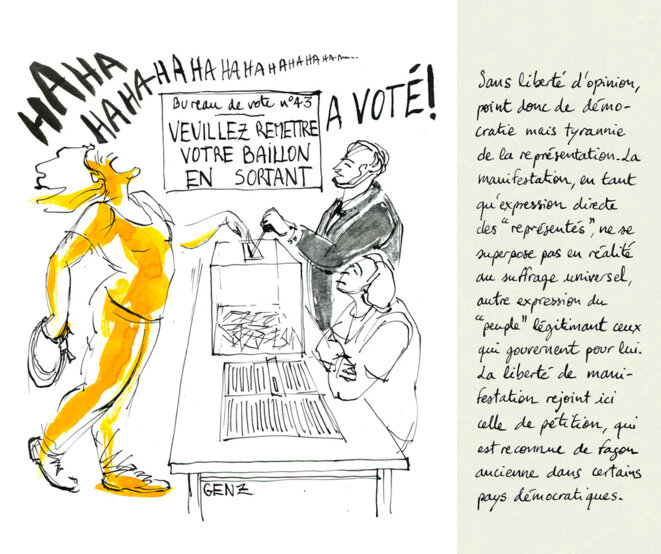 HAHAHAHAHAHAHAHAHAHAHAHAHA...
Bureau de vote n°43
VEUILLEZ REMETTRE
VOTRE BAILLON
EN SORTANT
A VOTÉ!
GENZ
Sans liberté d'opinion,
point donc de démo-
cratie mais tyrannie
de la représentation. La
manifestation, en tant
qu'expression directe
des "représentés", ne se
superpose pas en réalité
au suffrage universel,
autre expression du
"peuple" légitimant ceux
qui gouvernent pour lui.
La liberté de mani-
festation rejoint ici
celle de pétition, qui
est reconnue de façon
ancienne dans certains
pays démocratiques.